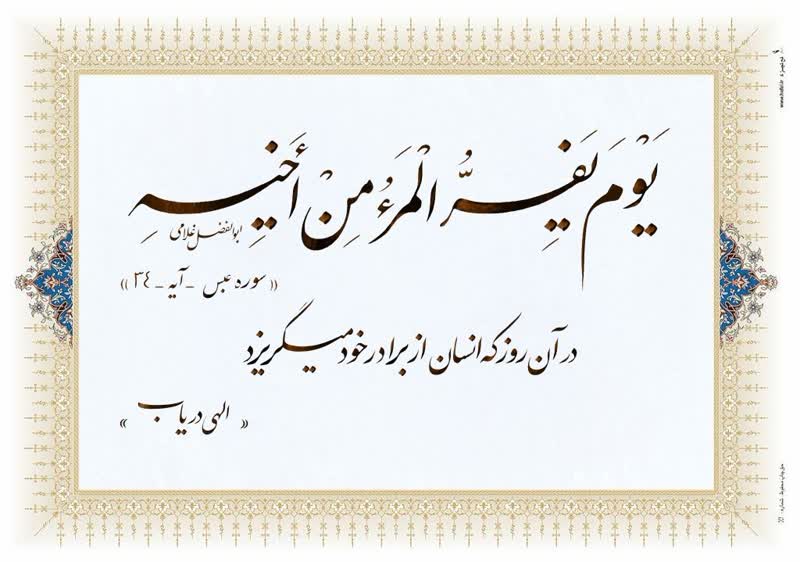 يَوْمَ يَفِرُّ الْمَرْءُ مِنْ أَخِيهِ
ابوالفضل غلامی
(( سوره عبس - آیه - ٣٤ ))
در آن روز که انسان از برادر خود میگریزد
« الهی دریاب »